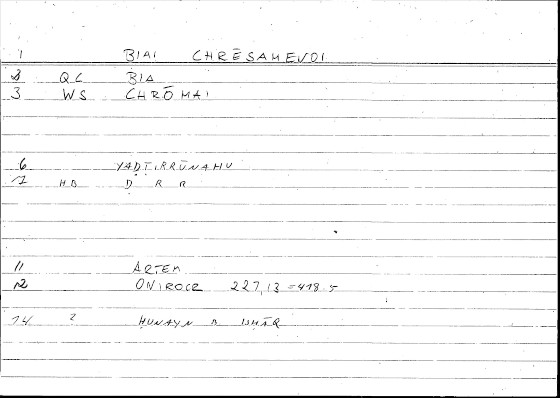 1 BIAI CHRĒSAMENOI
2 QC BIA
3 WS CHRŌMAI
6 YAḌṬIRRŪNAHU
7 HB Ḍ R R
11 ARTEM
12 ONIROCR 227,13 = 418.5
14 2 ḤUNAYN B ISḤĀQ